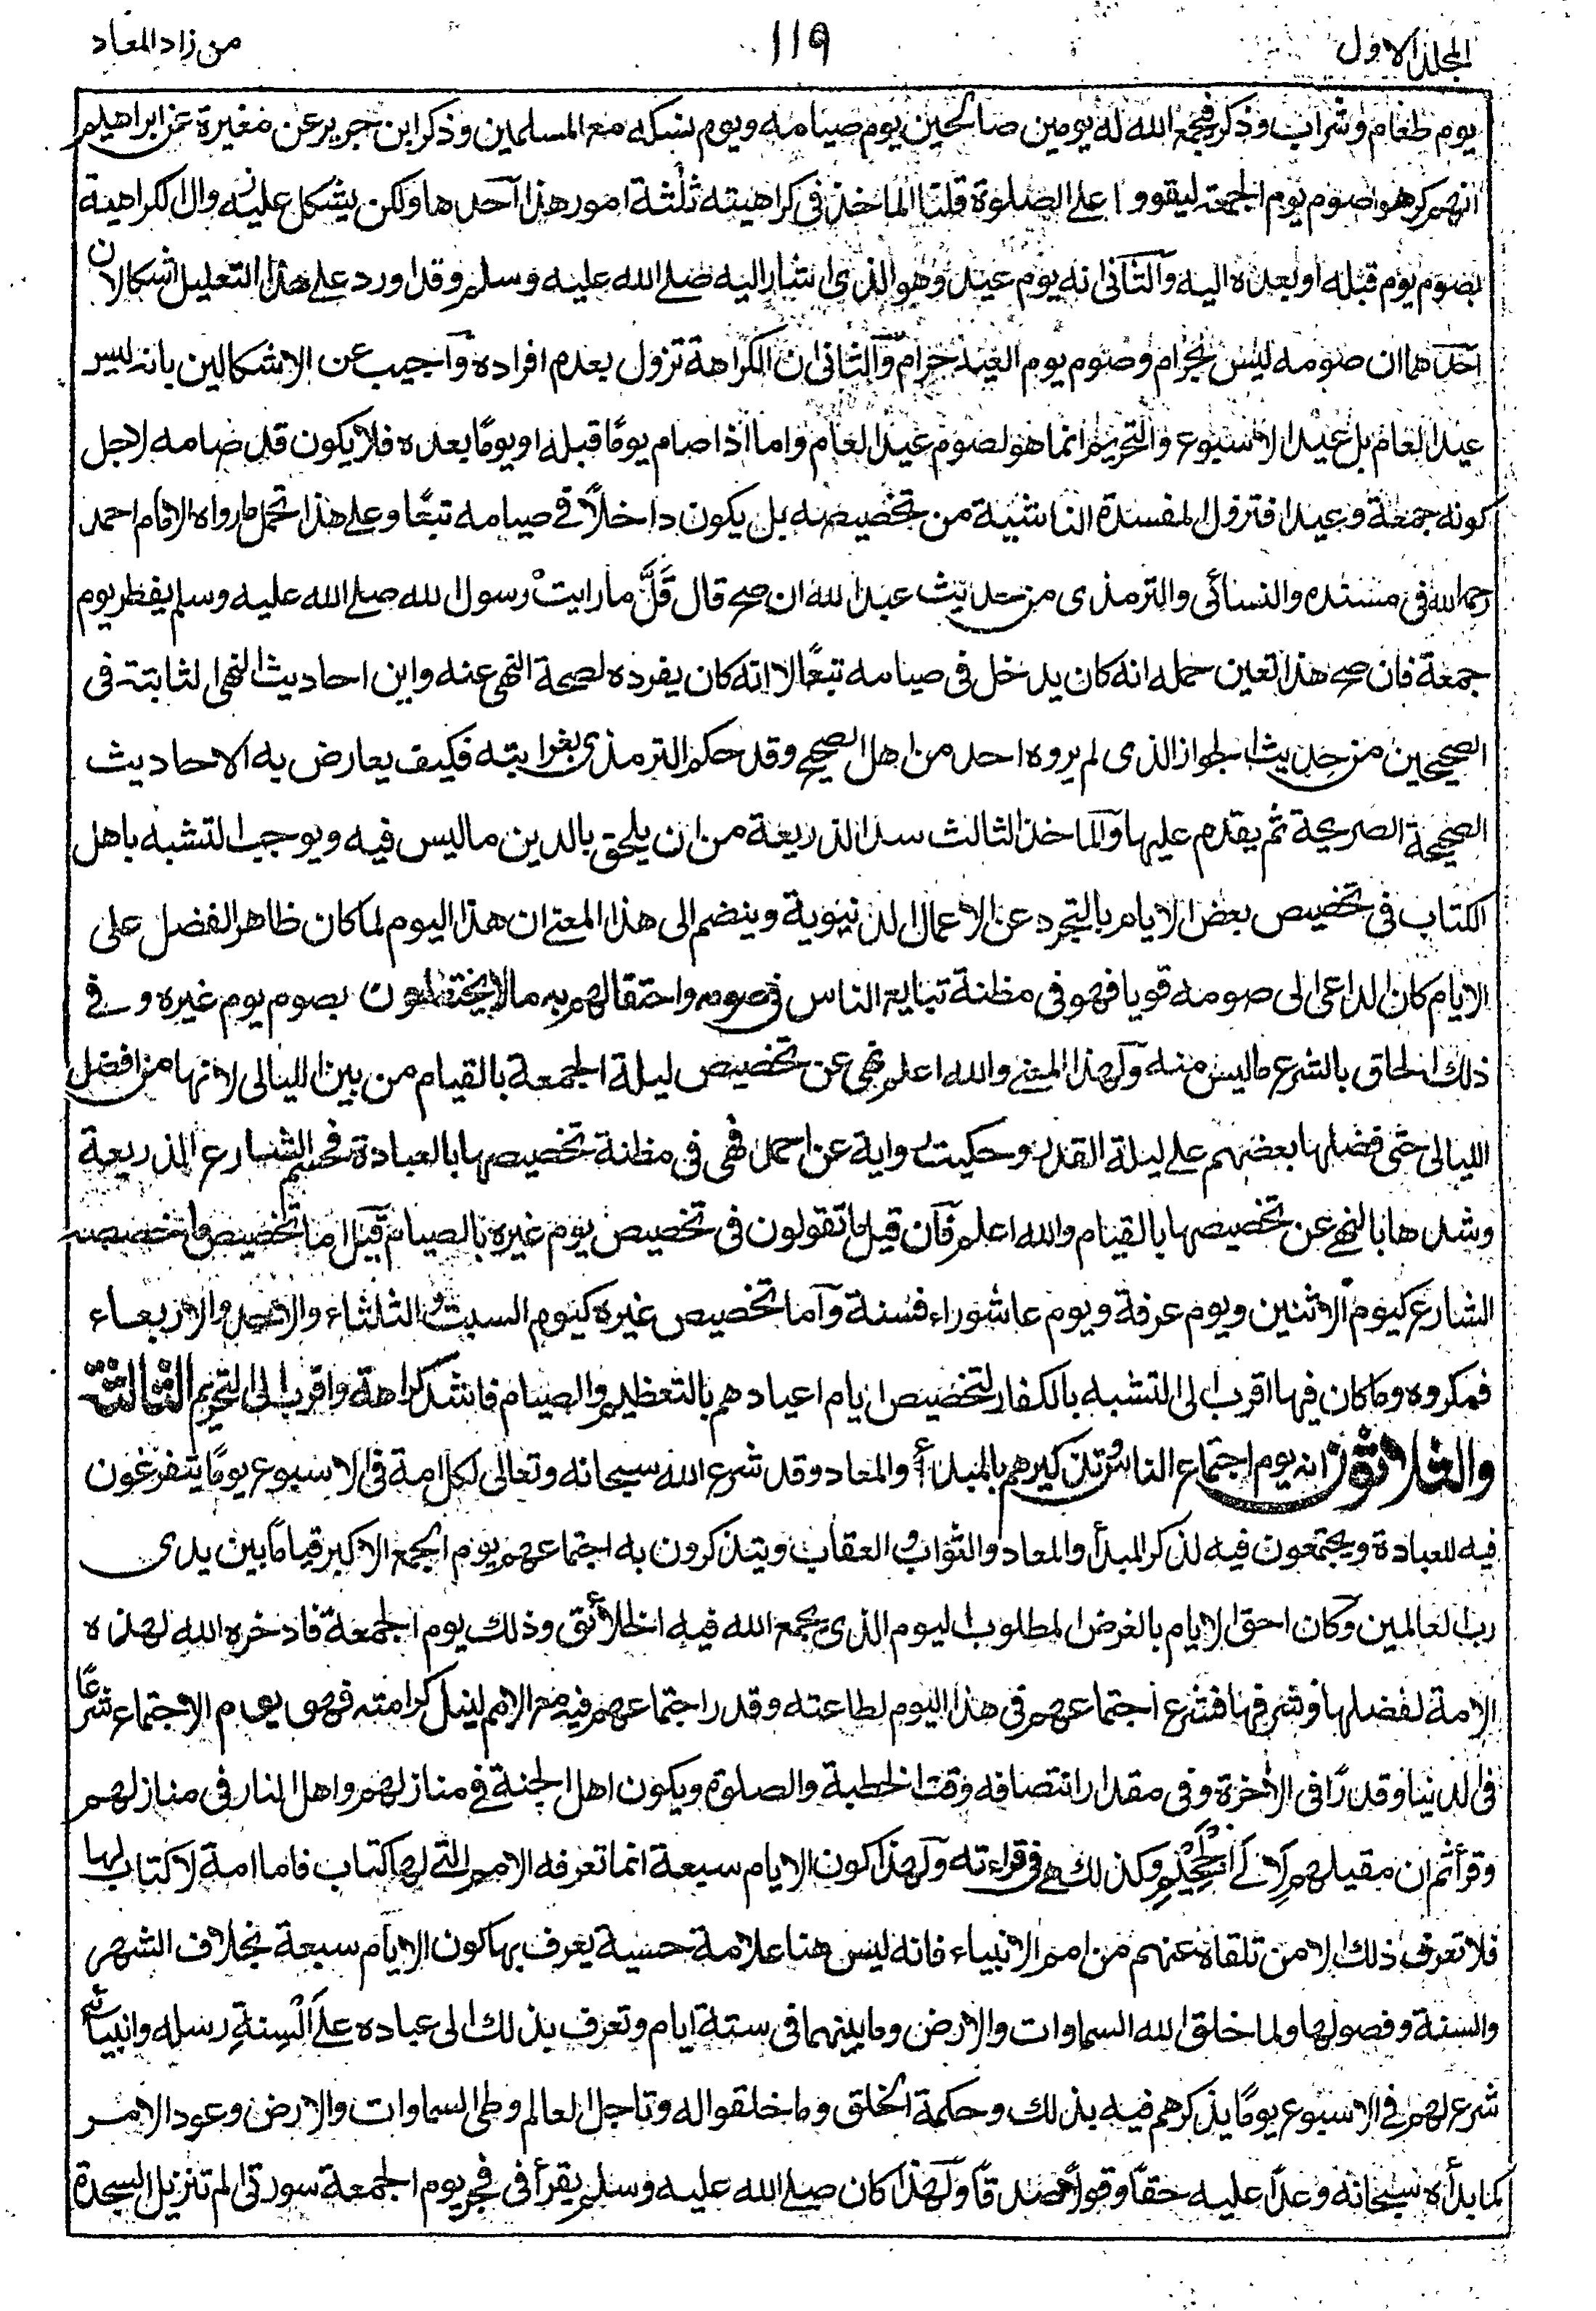 المجلد الاول
119
من زاد المعاد
يوم طعام وشراب وذكر فيجمع الله له يومين صالحين يوم صيامه ويوم نسكه مع المسلمين وذكر ابن جرير عن مغيرة عن ابراهيم
انهم كرهوا صوم يوم الجمعة ليقووا على الصلوة قلنا الماخذ فى كراهيته ثلثة امور هذا آحدها ولكن يشكل عليه زوال الكراهية
بصوم يوم قبله او بعده اليه والثانى انه يوم عيد وهو الذى اشار اليه صلے الله عليه وسلم وقد اورد علے هذا التعليل اشكالان
آحدهما ان صومه ليس بحرام وصوم يوم العيد حرام والثانى ان الكراهة تزول بعدم افراده وآجيب عن الاشكالين بانه ليس
عيد العام بل عيد الاسبوع والتحريم انما هو لصوم عيد العام واما اذا صام يومًا قبله او يومًا بعده فلا يكون قد صامه لاجل
كونه جمعة وعيدا فتزول المفسدة الناشية من تخصيصه بل يكون داخلًا فے صيامه تبعًا وعلے هذا تحمل ما رواه الامام احمد
رحمه الله فى مسنده والنسائى والترمذى من حديث عبد الله ان صح قال قَلَّ ما رايتْ رسول الله صلے الله عليه وسلم يفطر يوم
جمعة فان صح هذا تعين حمله انه كان يدخل فى صيامه تبعًا لا انه كان يفرده لصحة النهى عنه واين احاديث النهى الثابتة فى
الصحيحين من حديث الجواز الذى لم يروه احد من اهل الصحيح وقد حكم الترمذى بغرابته فكيف يعارض به الاحاديث
الصحيحة الصريحة ثم يقدم عليها والماخذ الثالث سد الذريعة من ان يلحق بالدين ما ليس فيه ويوجب التشبه باهل
الكتاب فى تخصيص بعض الايام بالتجرد عن الاعمال الدنيوية وينضم الى هذا المعنے ان هذا اليوم لما كان ظاهر الفضل على
الايام كان الداعى الى صومه قويا فهو فى مظنة تتابع الناس فى صومه واحتفالهم به ما لا يحتفلون بصوم يوم غيره وفے
ذلك الحاق بالشرع ما ليس منه ولهذا المعنے والله اعلم نهى عن تخصيص ليلة الجمعة بالقيام من بين الليالى لانها من افضل
الليالى حتى فضلها بعضهم على ليلة القدر وحكيت رواية عن احمد فهى فى مظنة تخصيصها بالعبادة فحسم الشارع الذريعة
وسدها بالنهى عن تخصيصها بالقيام والله اعلم فآن قيل ما تقولون فى تخصيص يوم غيره بالصيام قيل اما تخصيص ما خصصه
الشارع كيوم الاثنين ويوم عرفة ويوم عاشوراء فسنة وآما تخصيص غيره كيوم السبت والثلثاء والاحد والاربعاء
فمكروه وما كان فيها اقرب الى التشبه بالكفار لتخصيص ايام اعيادهم بالتعظيم والصيام فاشد كراهة واقرب الى التحريم الثالثة
والثلاثون انه يوم اجتماع الناس وتذكيرهم بالمبدأ والمعاد وقد شرع الله سبحانه وتعالى لكل امة فى الاسبوع يومًا يتفرغون
فيه للعبادة ويجتمعون فيه لذكر المبدأ والمعاد والثواب والعقاب ويتذكرون به اجتماعهم يوم الجمع الاكبر قياما بين يدى
رب العالمين وكان احق الايام بالغرض المطلوب اليوم الذى يجمع الله فيه الخلائق وذلك يوم الجمعة فادخره الله لهذه
الامة لفضلها وشرفها فشرع اجتماعهم فى هذا اليوم لطاعته وقدر اجتماعهم فيه مع الامم لنيل كرامته فهو يوم الاجتماع شرعًا
فى الدنيا وقدرًا فى الاٰخرة وفى مقدار انتصافه وقت الخطبة والصلوة ويكون اهل الجنة فے منازلهم واهل النار فى منازلهم
وقرأ ثم ان مقيلهم لَاِلَى الْجَحِيْمِ وكذلك هے فى قراءته ولهذا كون الايام سبعة انما تعرفه الامم التے لها كتاب فاما امة لا كتاب لها
فلا تعرف ذلك الا من تلقاه عنهم من امم الانبياء فانه ليس هنا علامة حسية يعرف بها كون الايام سبعة بخلاف الشهر
والسنة وفصولها ولما خلق الله السماوات والارض وما بينهما فى ستة ايام وتعرف بذلك الى عباده علے اَلْسِنةِ رسله وانبيائه
شرع لهم فے الاسبوع يومًا يذكرهم فيه بذلك وحكمة الخلق وما خلقوا له وتاجل العالم وطى السماوات والارض وعود الامر
كما بدأه سبحانه وعدًا عليه حقًا وقولًا صدقًا ولهذا كان صلے الله عليه وسلم يقرأ فى فجر يوم الجمعة سورتى الم تنزيل السجدة